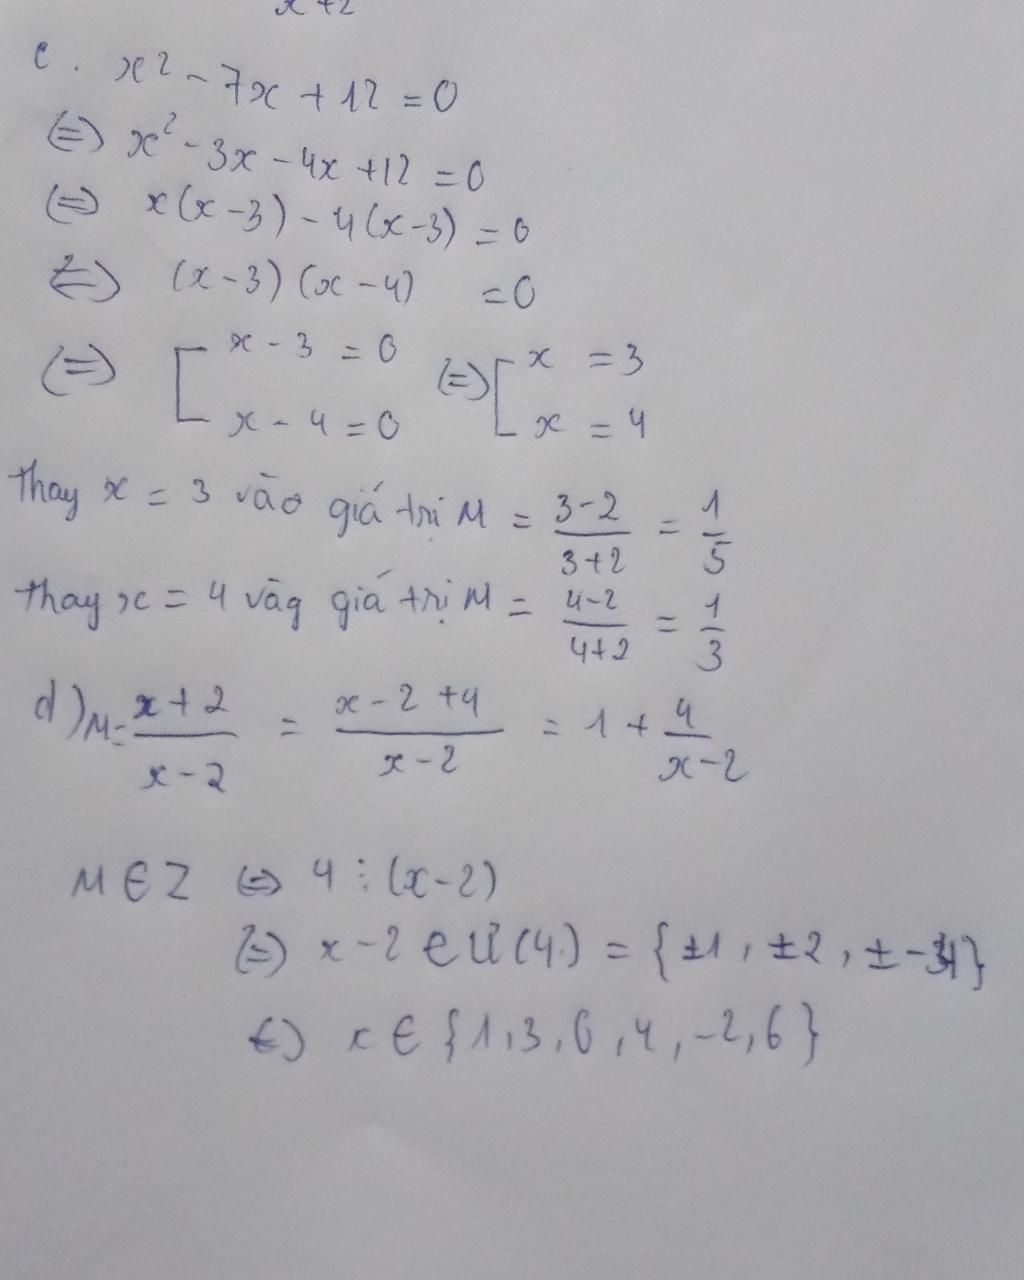 x+2
c. x² - 7x + 12 = 0
(=) x² - 3x - 4x + 12 = 0
(=) x(x-3) - 4(x-3) = 0
(=) (x-3)(x-4) = 0
(=) [ x - 3 = 0 (=) [ x = 3
x - 4 = 0 x = 4
Thay x = 3 vào giá trị M = \frac{3-2}{3+2} = \frac{1}{5}
thay x = 4 vào giá trị M = \frac{4-2}{4+2} = \frac{1}{3}
d) M = \frac{x+2}{x-2} = \frac{x-2+4}{x-2} = 1 + \frac{4}{x-2}
M ∈ Z (=) 4 ⋮ (x-2)
(=) x-2 ∈ Ư(4) = {±1, ±2, ±4}
(=) x ∈ {1, 3, 0, 4, -2, 6}